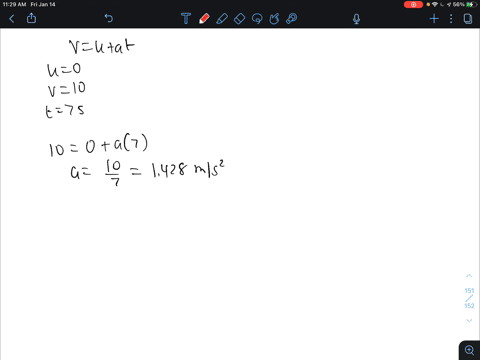 11:29 AM Fri Jan 14
56%
V=u+at
u=0
V=10
t=7s
10 = 0 + a(7)
a= 10/7 = 1.428 m/s²
151
/
153